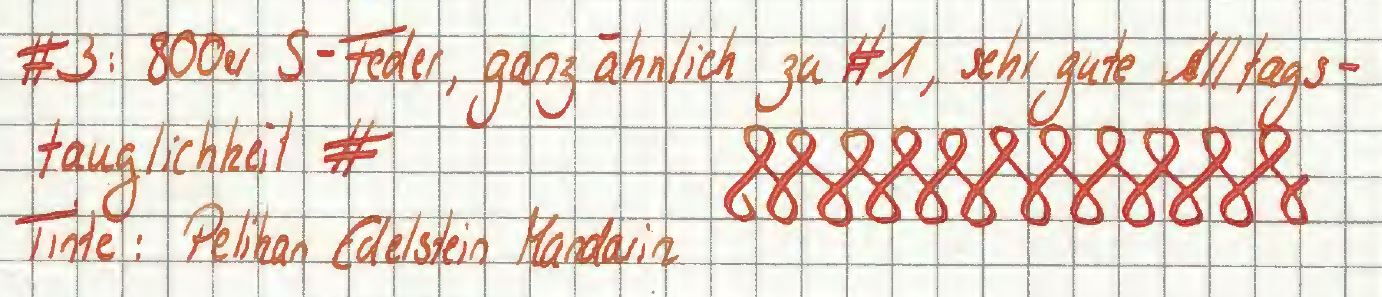 #3: 800er S-Feder, ganz ähnlich zu #1, sehr gute Alltags-
tauglichkeit #
Tinte: Pelikan Edelstein Mandarin